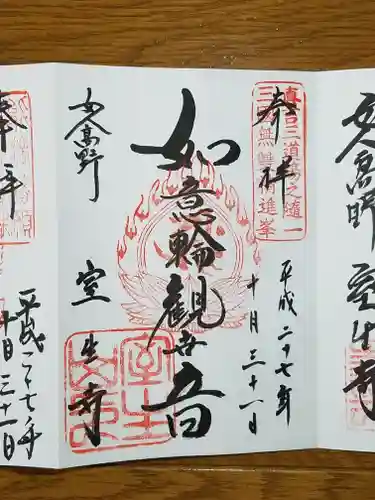 女人高野 室生寺
奉拝
平成二十七年
十月三十一日
如意輪観世音
女人高野
室生寺
奉拝
平成二十七年
十月三十一日